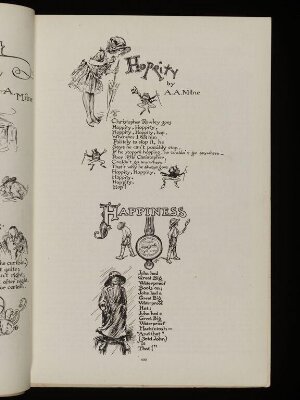 Hoppity
by
A.A. Milne
Christopher Robin goes
Hoppity, Hoppity,
Hoppity, Hoppity, hop.
Whenever I tell him
Politely to stop it, he
Says he can't possibly stop.
If he stopped hopping, he couldn't go anywhere,
Poor little Christopher
Couldn't go anywhere...
That's why he always goes
Hoppity, Hoppity,
Hoppity,
Hoppity,
Hop!
HAPPINESS
John had
Great Big
Waterproof
Boots on;
John had a
Great Big
Waterproof
Hat;
John had a
Great Big
Waterproof
Mackintosh—
"And that"
(Said John)
"Is
That!"